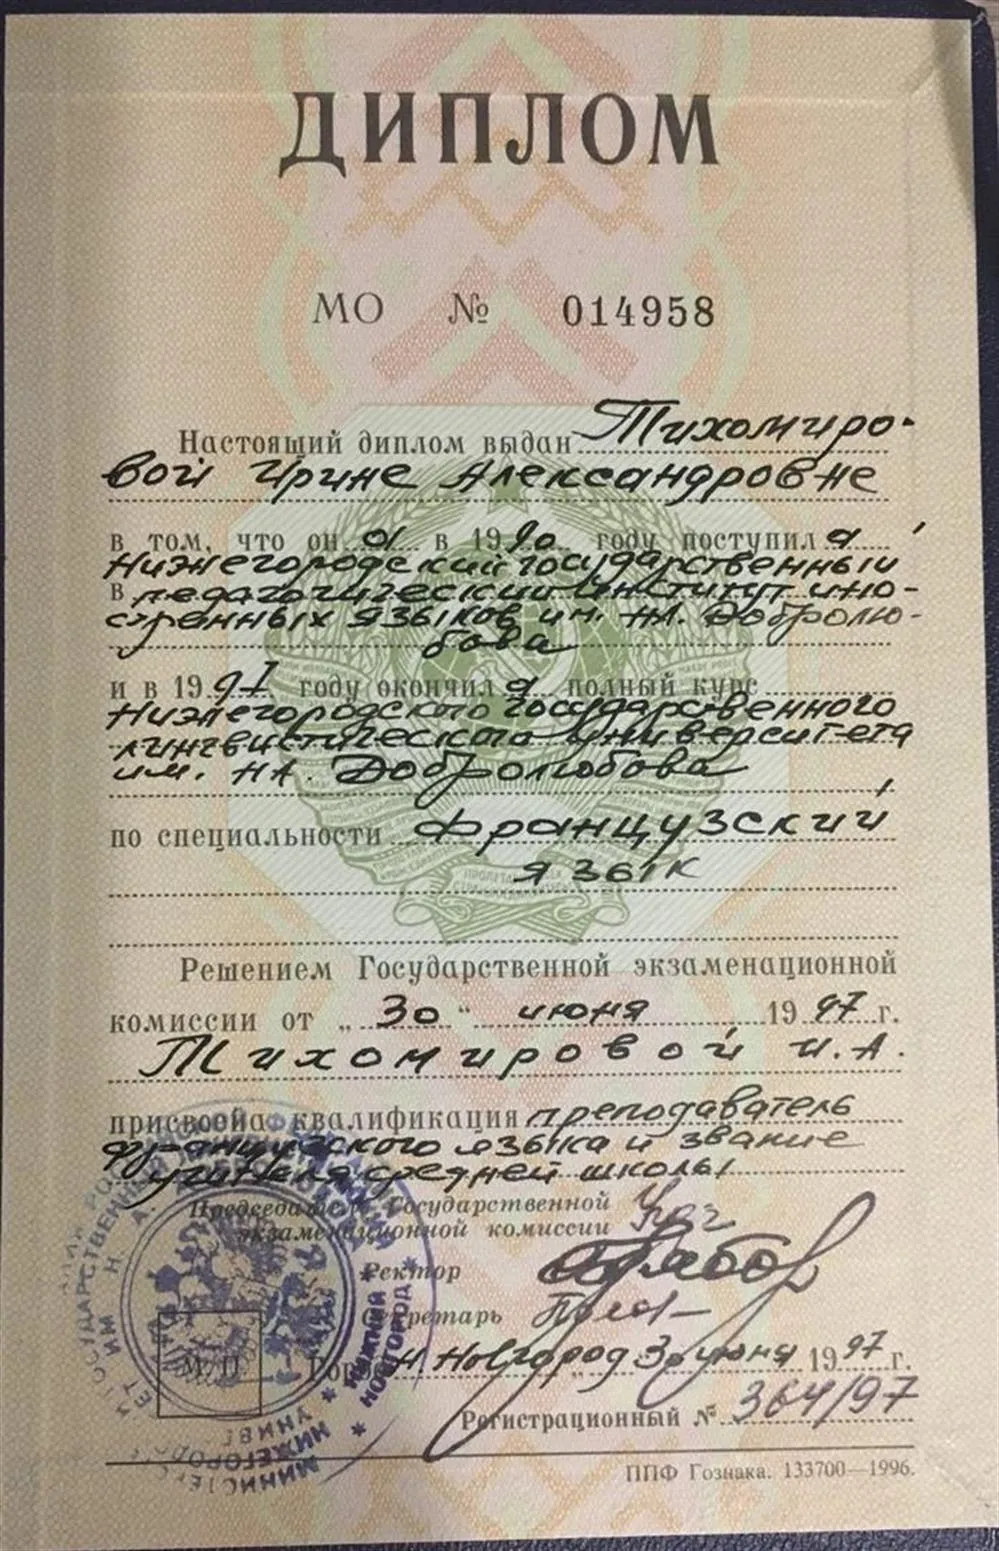 ДИПЛОМ
МО № 014958
Настоящий диплом выдан Тихомиро-
вой Ирине Александровне
в том, что он а в 1990 году поступил а
в Нижегородский государственный
педагогический институт ино-
странных языков им. НА. Добролю-
бова
и в 1997 году окончил а полный курс
Нижегородского государственного
лингвистического университета
им. НА. Добролюбова
по специальности французский
язык
Решением Государственной экзаменационной
комиссии от „30“ июня 1997 г.
Тихомировой И.А.
присвоена квалификация преподаватель
французского языка и звание
учителя средней школы
Председатель Государственной
экзаменационной комиссии
Ректор
Секретарь
М. П. Город Н. Новгород 30 июня 1997 г.
Регистрационный № 364/97
ППФ Гознака. 133700—1996.
НИЖНИЙ НОВГОРОД